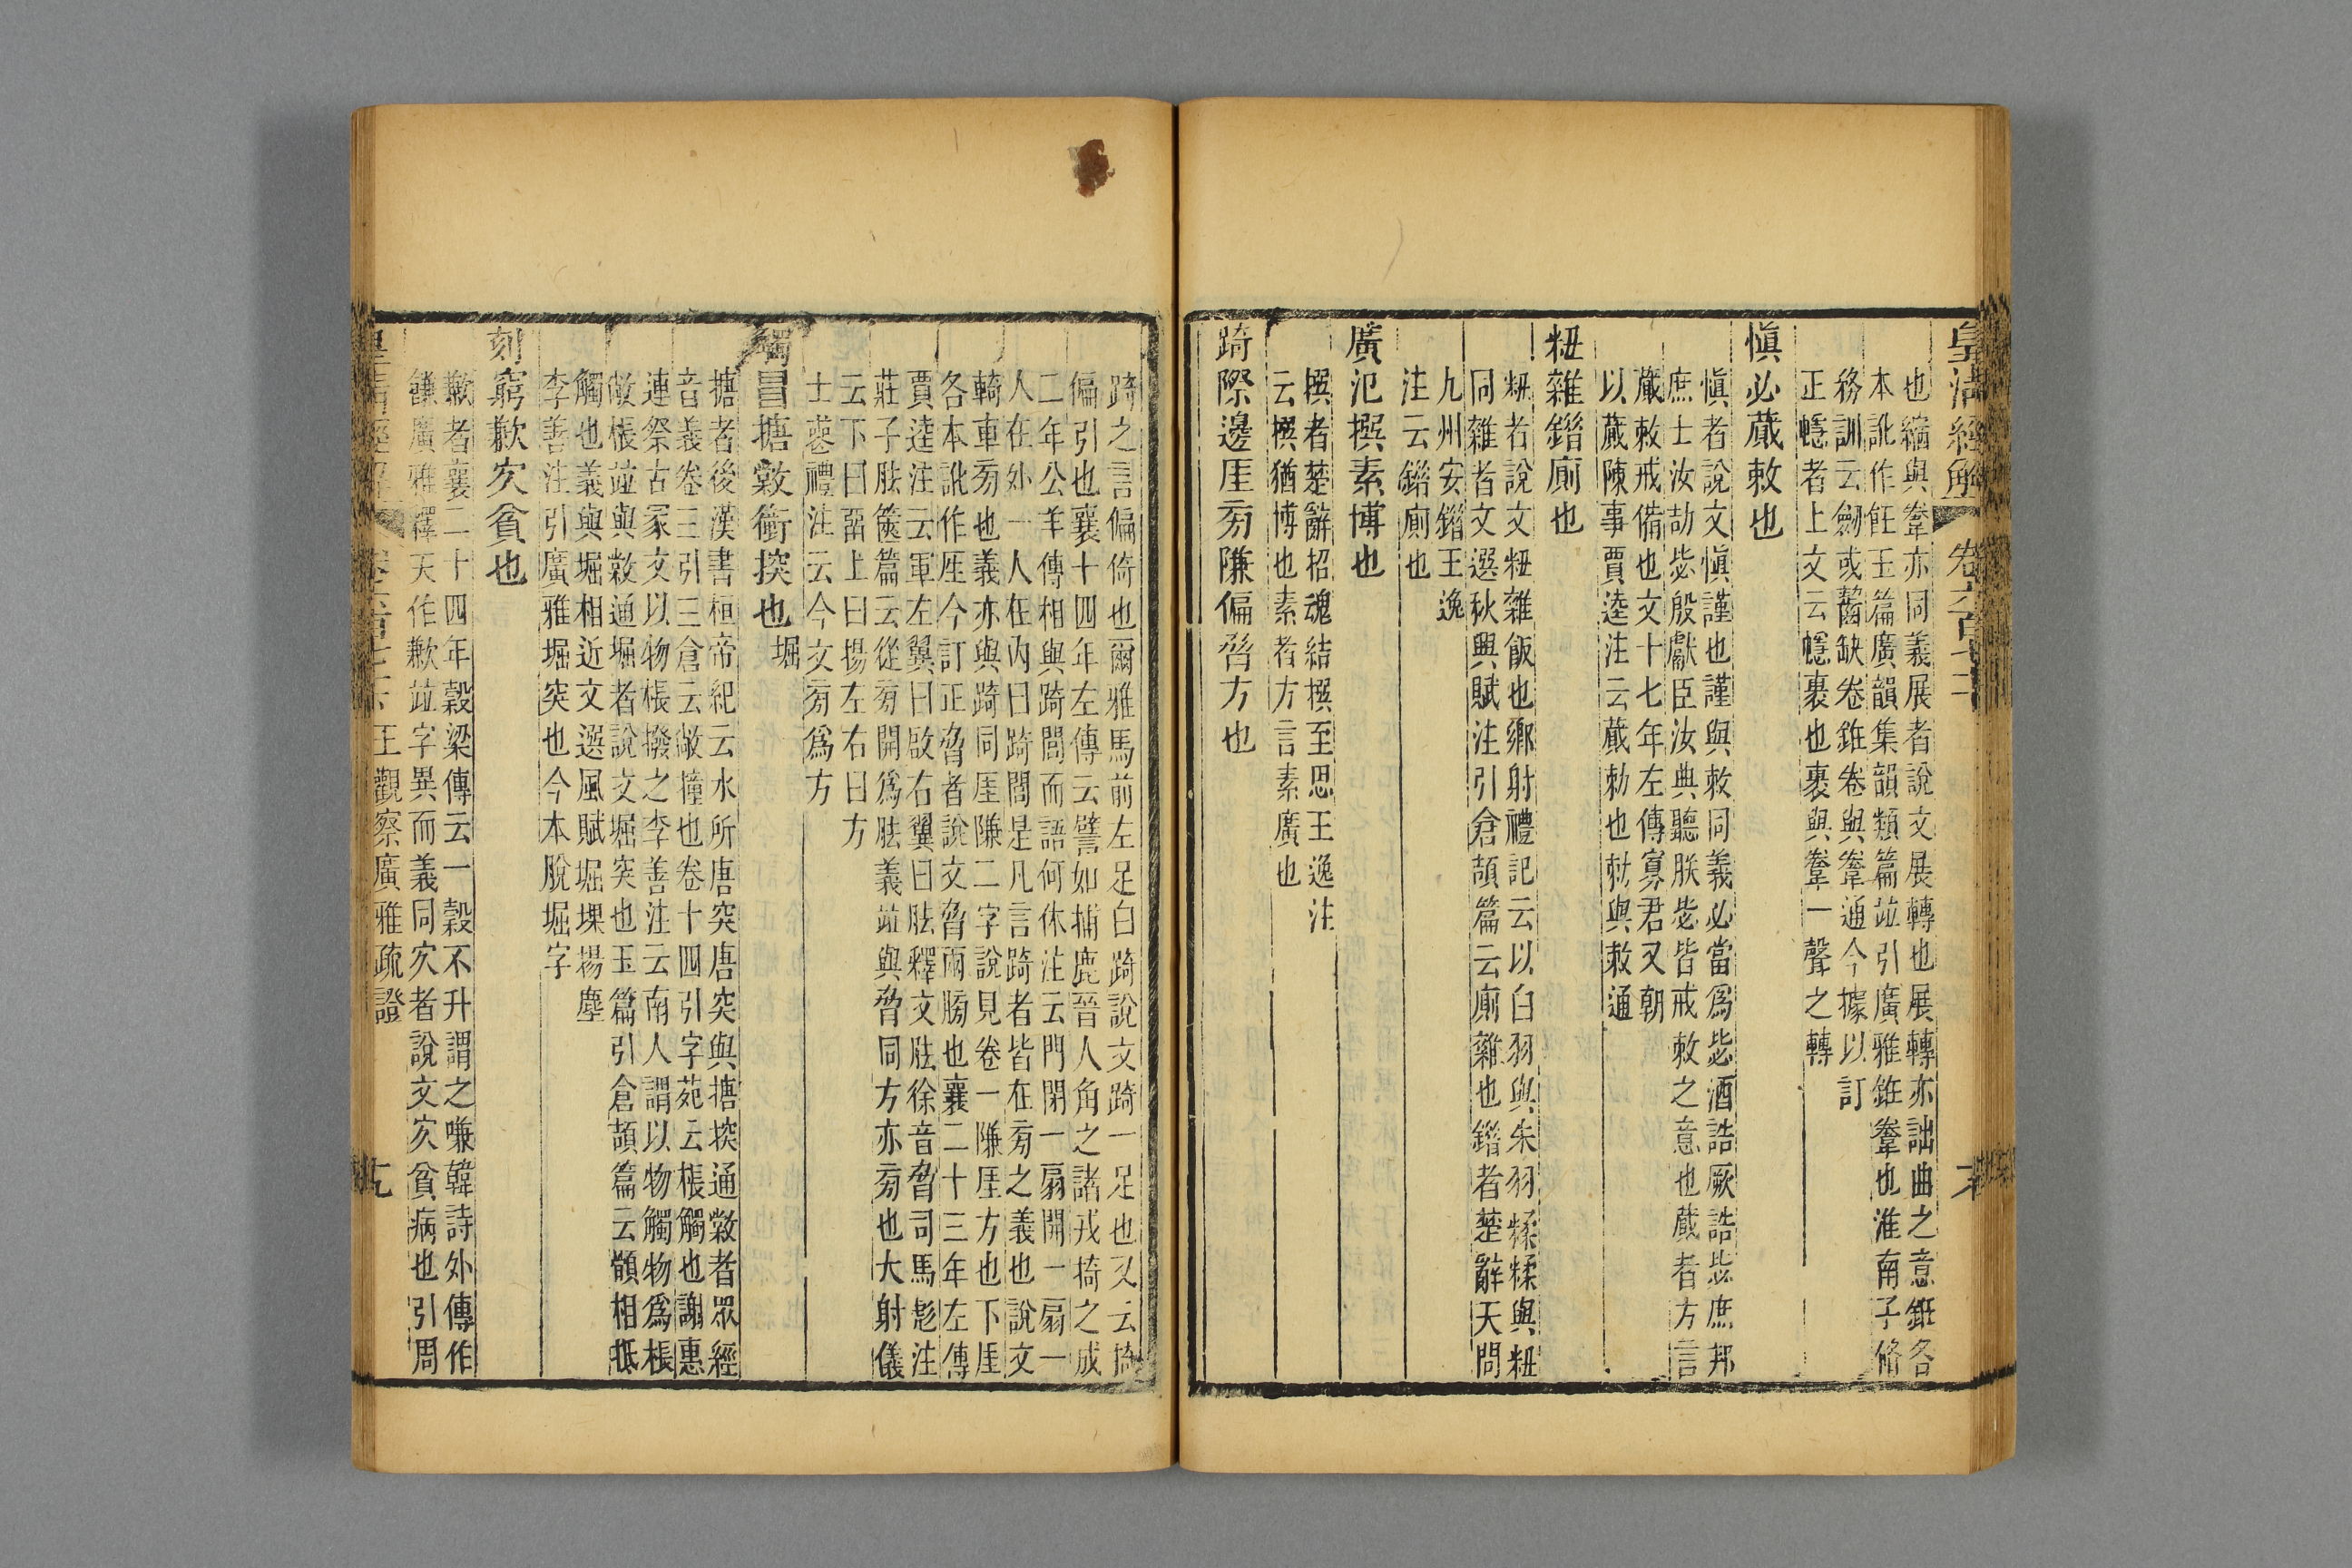 皇清經解 卷六百七十二
也縮與韏亦同義展者說文展轉也展轉亦詘曲之意䤥各
本訛作飪玉篇廣韻集韻類篇竝引廣雅錐韏也淮南子脩
務訓云劒或齧缺卷錐卷與韏通今據以訂
正㡥者上文云㡥裹也裹與韏一聲之轉
愼必蕆敕也
愼者說文愼謹也謹與敕同義必當爲毖酒誥厥誥毖庶邦
庶士汝劼毖殷獻臣汝典聽朕毖皆戒敕之意也蕆者方言
蕆敕戒備也文十七年左傳寡君又朝
以蕆陳事賈逵注云蕆勑也勑與敕通
粈雜䥺廁也
粈者說文粈雜飯也鄉射禮記云以白羽與朱羽糅糅與粈
同雜者文選秋興賦注引倉頡篇云廁雜也䥺者楚辭天問
九州安䥺王逸
注云䥺廁也
廣氾撰素博也
撰者楚辭招魂結撰至思王逸注
云撰猶博也素者方言素廣也
踦際邊厓㫄隒偏脅方也
踦之言偏倚也爾雅馬前左足白踦說文踦一足也又云掎
偏引也襄十四年左傳云譬如捕鹿晉人角之諸戎掎之成
二年公羊傳相與踦閭而語何休注云門閉一扇開一扇一
人在外一人在內曰踦閭是凡言踦者皆在㫄之義也說文
輢車㫄也義亦與踦同厓隒二字說見卷一隒厓方也下厓
各本訛作厓今訂正脅者說文脅兩膀也襄二十三年左傳
賈逵注云軍左翼曰啟右翼曰胠釋文胠徐音脅司馬彪注
莊子胠篋篇云從㫄開爲胠義竝與脅同方亦㫄也大射儀
云下曰畱上曰揚左右曰方
士喪禮注云今文㫄爲方
觸冒搪敹衝揬也堀
搪者後漢書桓帝紀云水所唐突唐突與搪揬通敹者眾經
音義卷三引三倉云敞撞也卷十四引字苑云棖觸也謝惠
連祭古冢文以物棖撥之李善注云南人謂以物觸物爲棖
敞棖竝與敹通堀者說文堀突也玉篇引倉頡篇云㲉相抵
觸也義與堀相近文選風賦堀堁揚塵
李善注引廣雅堀突也今本脫堀字
刻窮歉㝌貧也
歉者襄二十四年穀梁傳云一穀不升謂之嗛韓詩外傳作
䭑廣雅釋天作歉竝字異而義同㝌者說文㝌貧病也引周
皇清經解 卷六百七十二 王觀察廣雅疏證 九